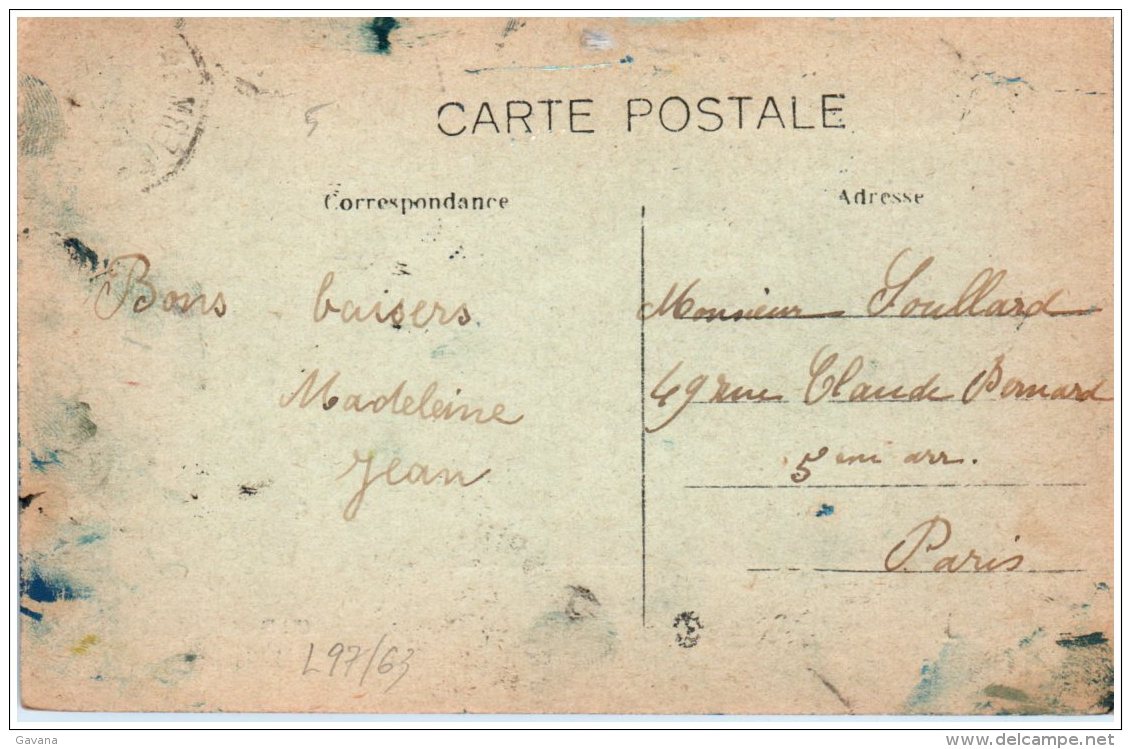 5
CARTE POSTALE
Correspondance
Adresse
Bons baisers
Madeleine
Jean
Monsieur Soullard
49 rue Claude Bernard
5eme arr.
Paris
L97/63
Gavana
delcampe.net